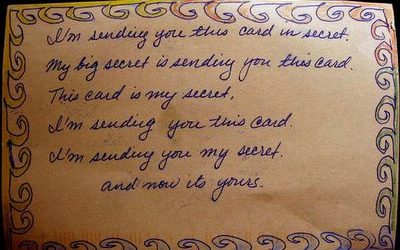 I'm sending you this card in secret.
My big secret is sending you this card.
This card is my secret,
I'm sending you this card.
I'm sending you my secret.
and now its yours.